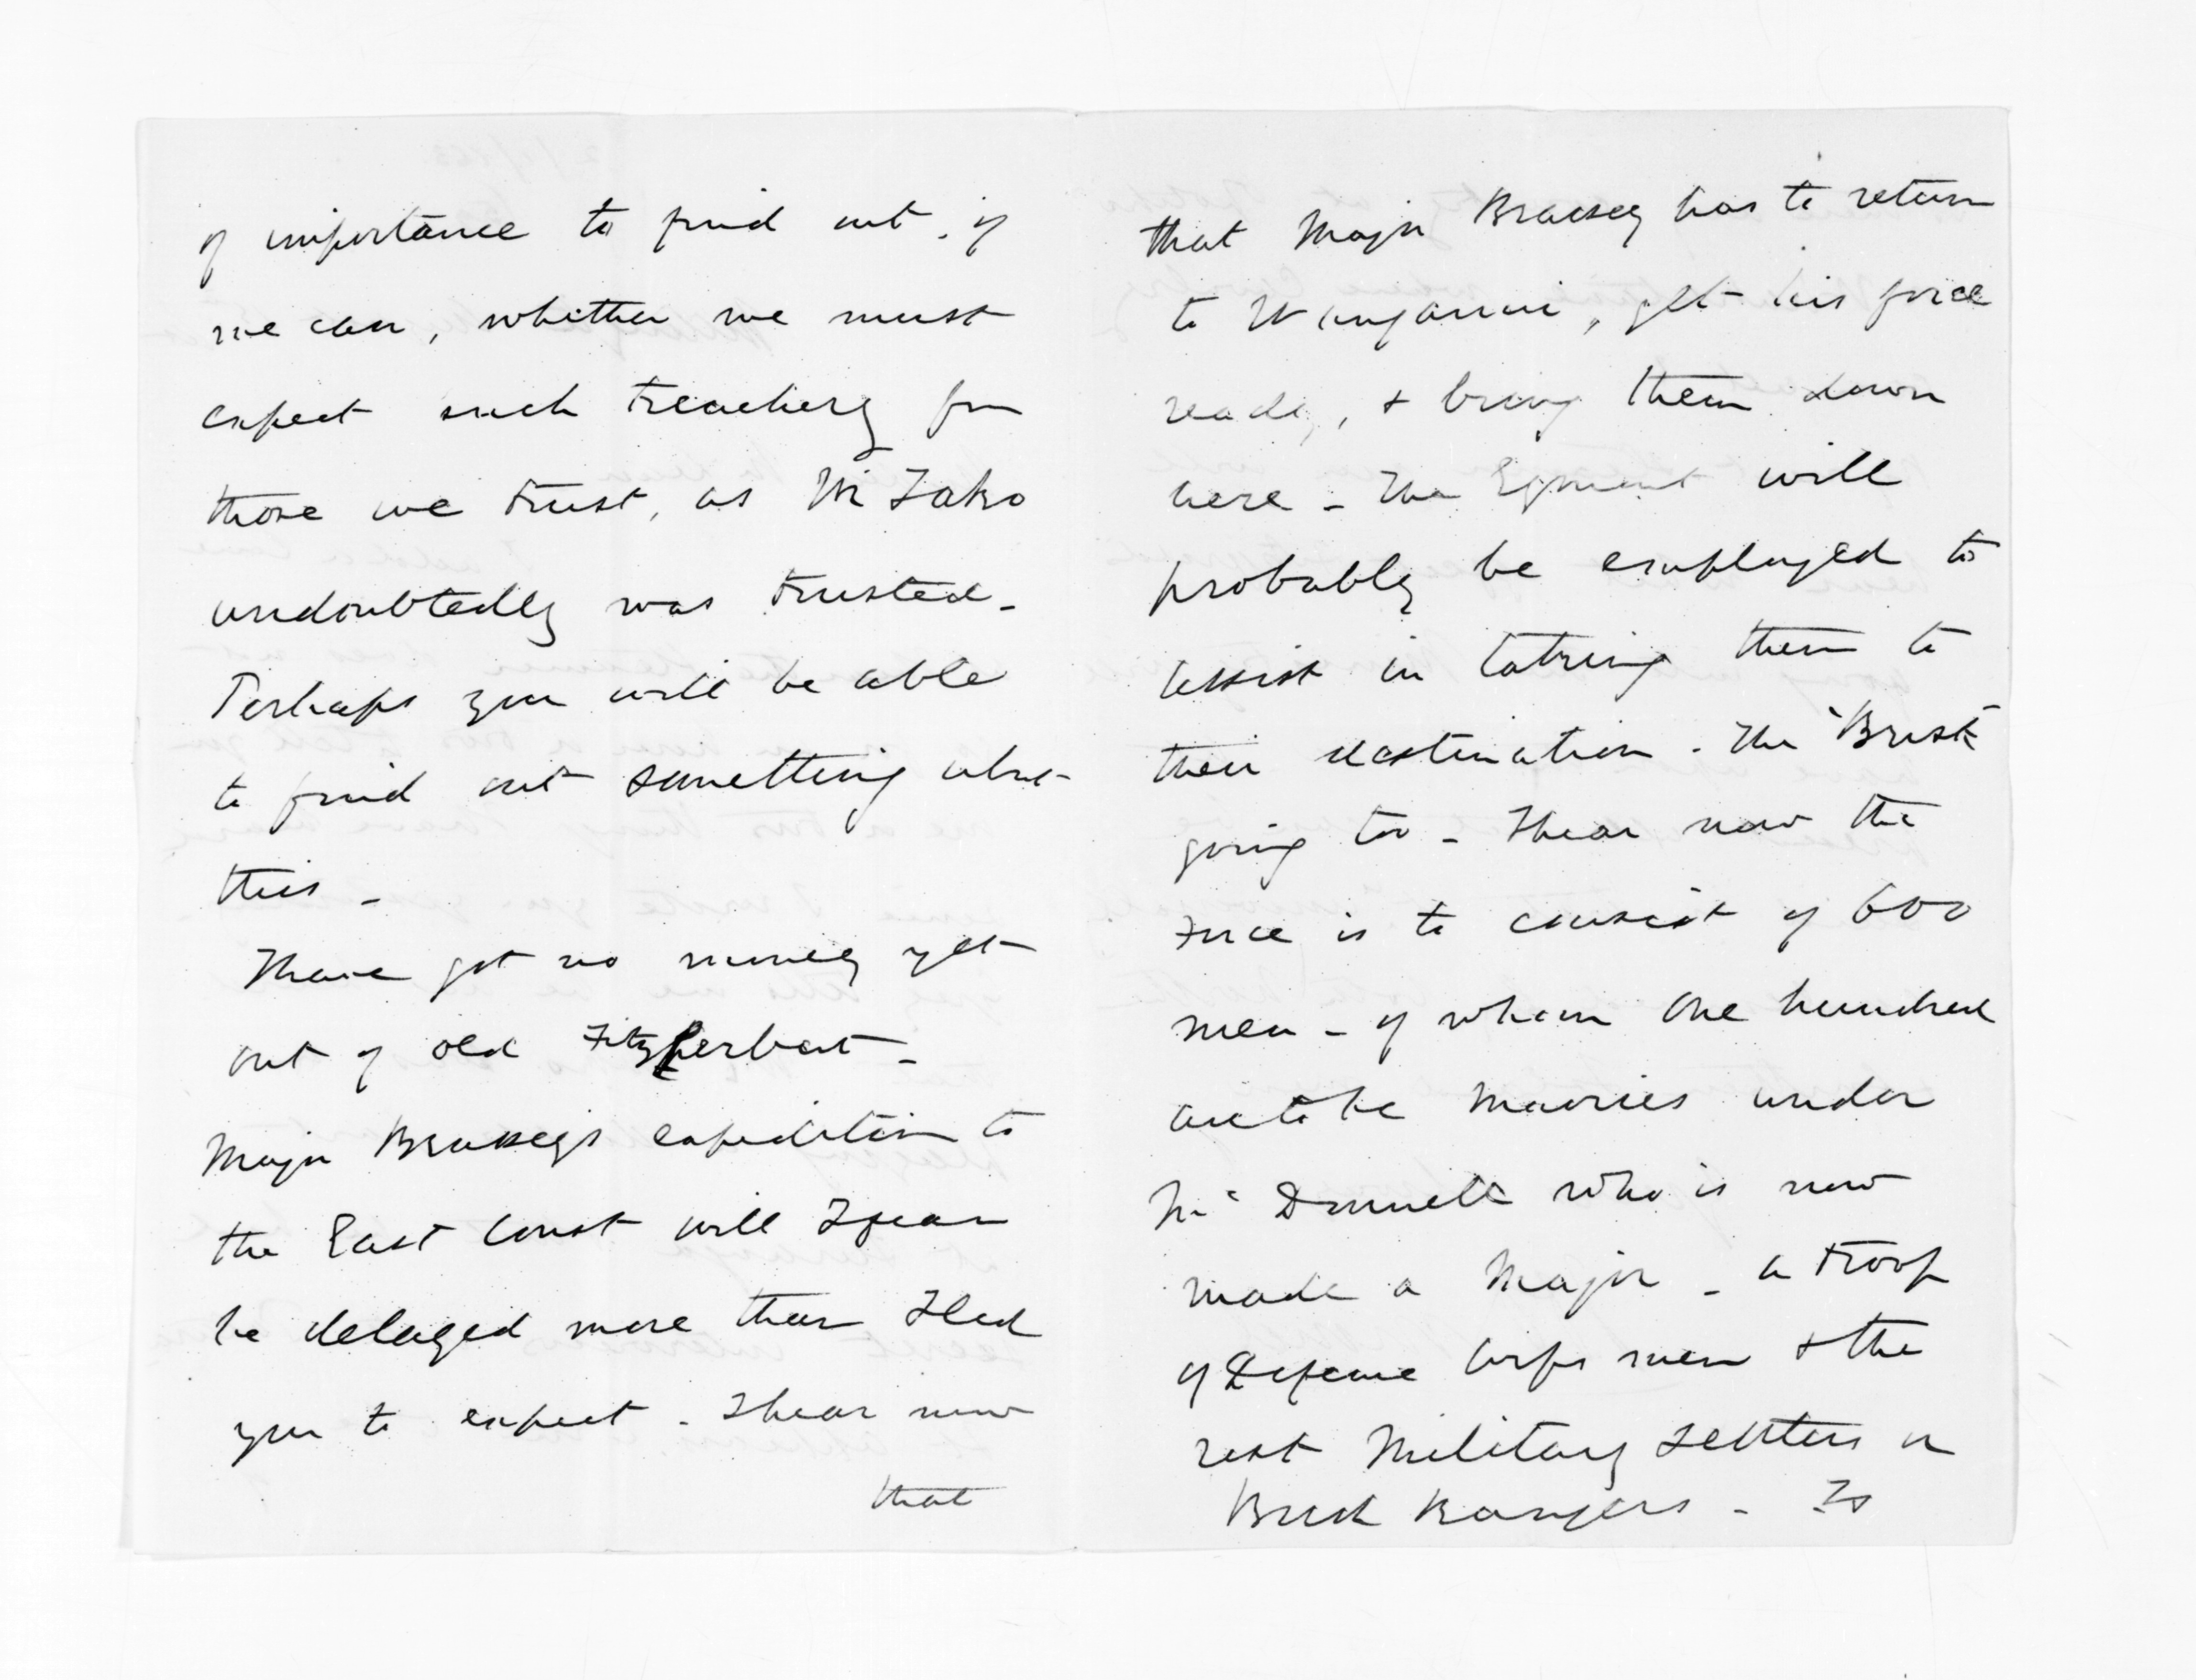 of importance to find out, if
we can, whether we must
expect such treachery from
those we trust, as Wi Tako
undoubtedly was trusted -
Perhaps you will be able
to find out something about
this -
I have got no money yet
out of old Fitzherbert -
Major Brassey's expedition to
the East Coast will I fear
be delayed more than I led
you to expect. I hear now
that
that Major Brassey has to return
to Wanganui, get his force
ready, & bring them down
here - The Egmont will
probably be employed to
assist in taking them to
their destination. The "Brisk"
going too - I hear now the
Force is to consist of 600
men - of whom one hundred
are to be Maories under
McDonnell who is now
made a Major - a troop
of Defence Corps men & the
rest Military Settlers or
Bush Rangers - Is